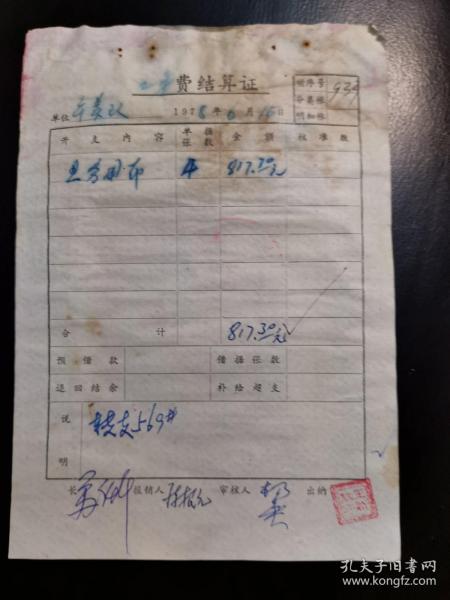 费结算证
顺序号 939
分类帐
明细帐
单位 1978年6月16日
开支内容 单据张数 金额 核准数
业务用布 4 817.30元
合计 817.30元
预借款 借据张数
退回结余 补给超支
说明 转支569#
长 报销人 审核人 出纳
孔夫子旧书网
www.kongfz.com